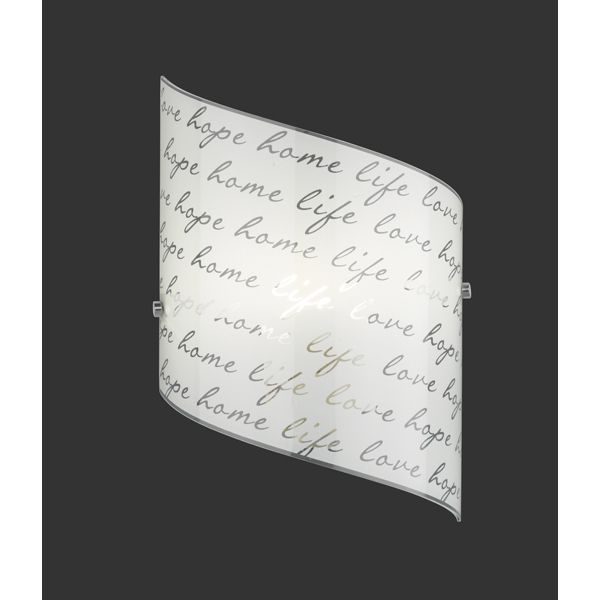 love hope home life love
hope home life love hope
love hope home life love
hope home life love hope
hope home life love
home life love hope
hope home life love hope